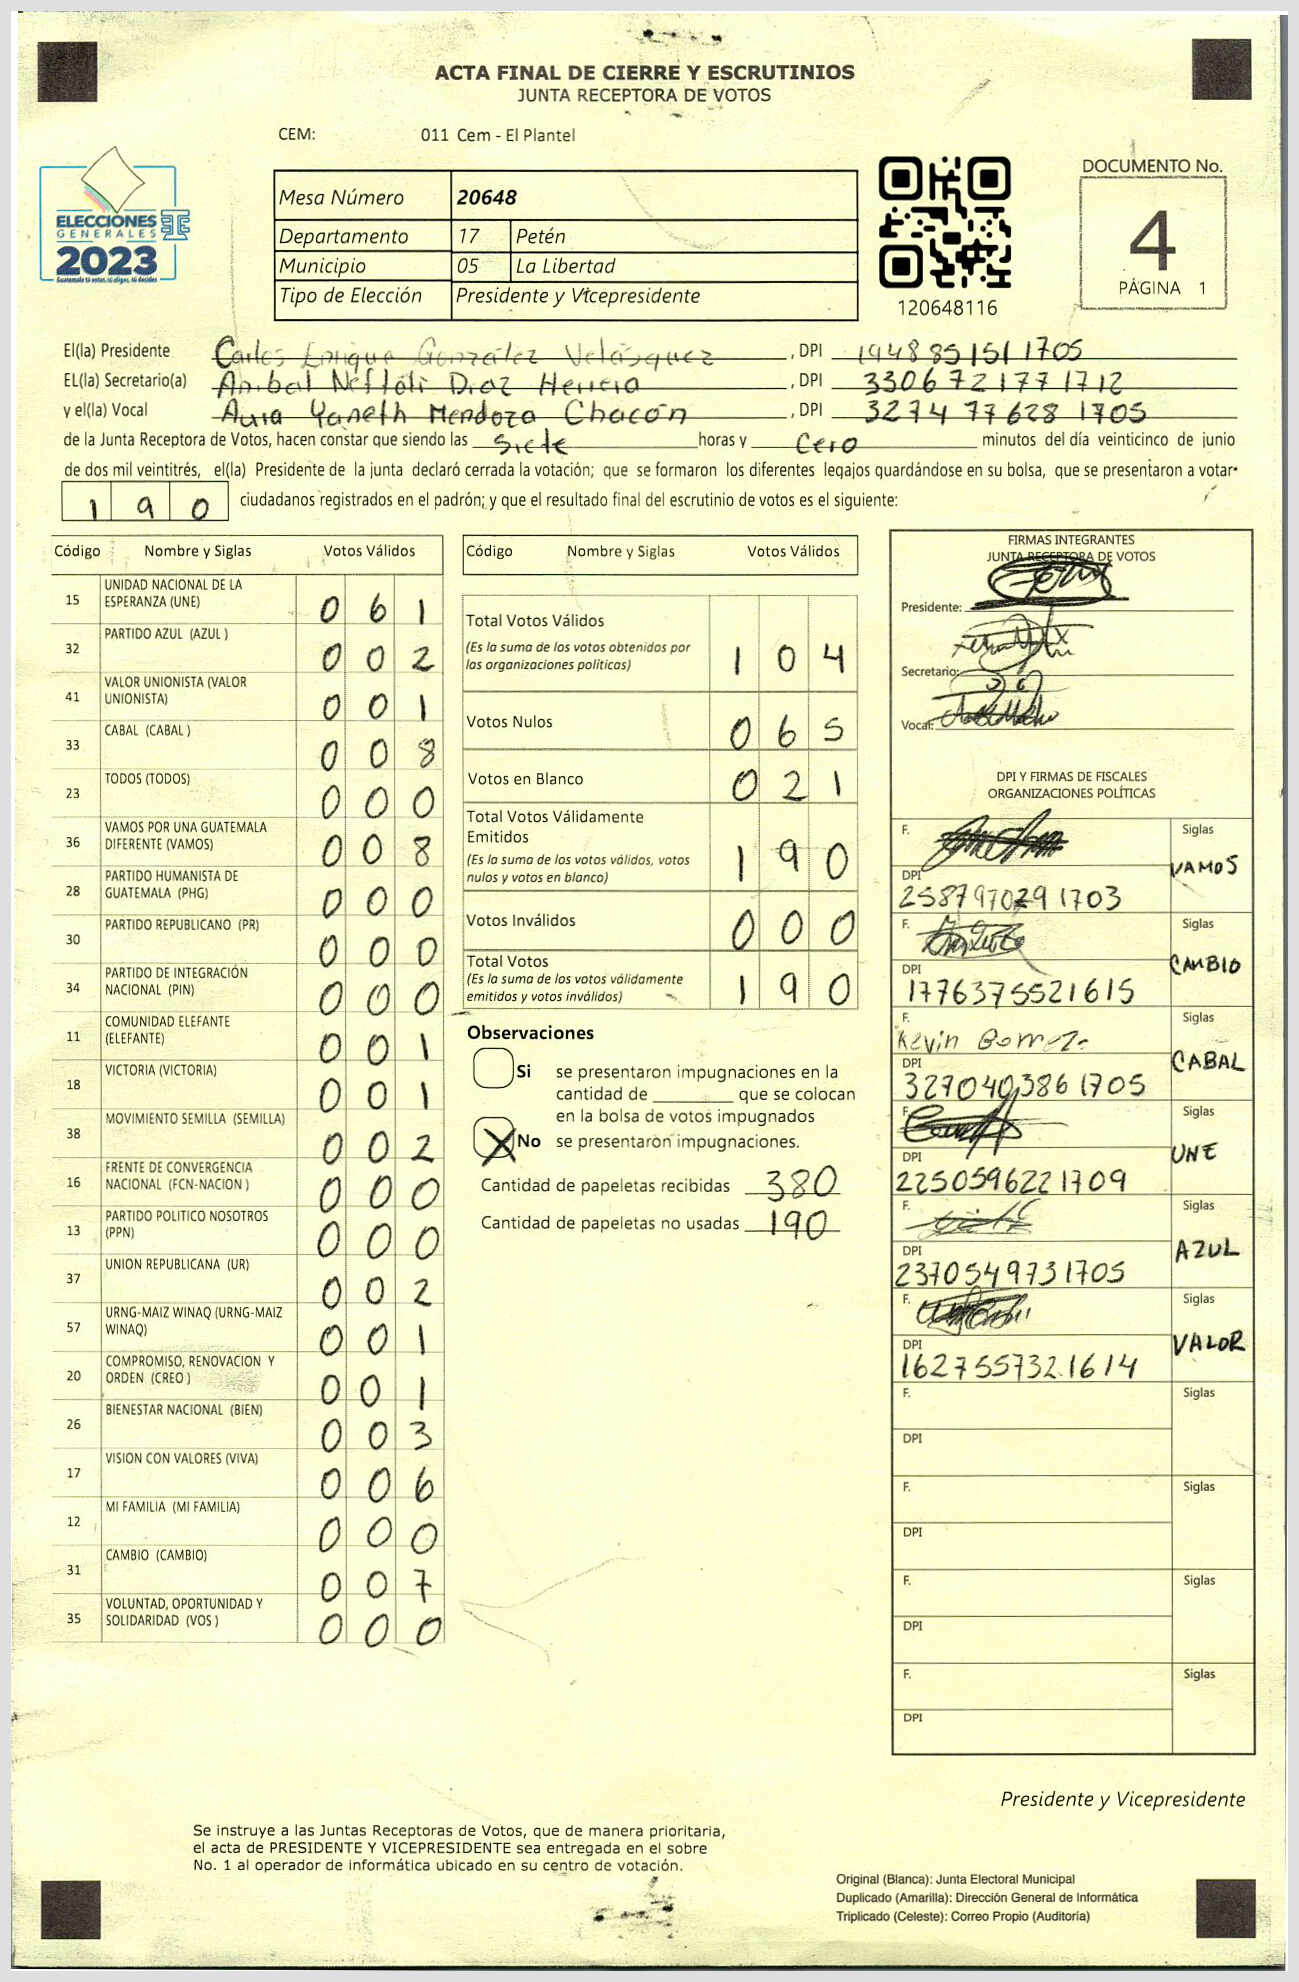 ACTA FINAL DE CIERRE Y ESCRUTINIOS
JUNTA RECEPTORA DE VOTOS
CEM: 011 Cem - El Plantel
ELECCIONES
GENERALES
2023
Guatemala tú votas, tú eliges, tú decides
Mesa Número 20648
Departamento 17 Petén
Municipio 05 La Libertad
Tipo de Elección Presidente y Vicepresidente
120648116
DOCUMENTO No.
4
PÁGINA 1
El(la) Presidente Carlos Enrique González Velásquez, DPI 1948 85151 1705
EL(la) Secretario(a) Anibal Neftali Diaz Herrera, DPI 330672177 1712
y el(la) Vocal Aura Yaneth Mendoza Chacón, DPI 3274 77628 1705
de la Junta Receptora de Votos, hacen constar que siendo las Siete horas y Cero minutos del día veinticinco de junio
de dos mil veintitrés, el(la) Presidente de la junta declaró cerrada la votación; que se formaron los diferentes legajos guardándose en su bolsa, que se presentaron a votar
190 ciudadanos registrados en el padrón; y que el resultado final del escrutinio de votos es el siguiente:
Código Nombre y Siglas Votos Válidos
15 UNIDAD NACIONAL DE LA ESPERANZA (UNE) 061
32 PARTIDO AZUL (AZUL ) 002
41 VALOR UNIONISTA (VALOR UNIONISTA) 001
33 CABAL (CABAL ) 008
23 TODOS (TODOS) 000
36 VAMOS POR UNA GUATEMALA DIFERENTE (VAMOS) 008
28 PARTIDO HUMANISTA DE GUATEMALA (PHG) 000
30 PARTIDO REPUBLICANO (PR) 000
34 PARTIDO DE INTEGRACIÓN NACIONAL (PIN) 000
11 COMUNIDAD ELEFANTE (ELEFANTE) 001
18 VICTORIA (VICTORIA) 001
38 MOVIMIENTO SEMILLA (SEMILLA) 002
16 FRENTE DE CONVERGENCIA NACIONAL (FCN-NACION ) 000
13 PARTIDO POLITICO NOSOTROS (PPN) 000
37 UNION REPUBLICANA (UR) 002
57 URNG-MAIZ WINAQ (URNG-MAIZ WINAQ) 001
20 COMPROMISO, RENOVACION Y ORDEN (CREO ) 001
26 BIENESTAR NACIONAL (BIEN) 003
17 VISION CON VALORES (VIVA) 006
12 MI FAMILIA (MI FAMILIA) 000
31 CAMBIO (CAMBIO) 007
35 VOLUNTAD, OPORTUNIDAD Y SOLIDARIDAD (VOS ) 000
Código Nombre y Siglas Votos Válidos
Total Votos Válidos 104
(Es la suma de los votos obtenidos por
las organizaciones políticas)
Votos Nulos 065
Votos en Blanco 021
Total Votos Válidamente
Emitidos 190
(Es la suma de los votos válidos, votos
nulos y votos en blanco)
Votos Inválidos 000
Total Votos 190
(Es la suma de los votos válidamente
emitidos y votos inválidos)
Observaciones
Si se presentaron impugnaciones en la
cantidad de ________ que se colocan
en la bolsa de votos impugnados
X No se presentaron impugnaciones.
Cantidad de papeletas recibidas 380
Cantidad de papeletas no usadas 190
FIRMAS INTEGRANTES
JUNTA RECEPTORA DE VOTOS
Presidente:
Secretario:
Vocal:
DPI Y FIRMAS DE FISCALES
ORGANIZACIONES POLÍTICAS
F. Siglas VAMOS
DPI 2587970291703
F. Siglas CAMBIO
DPI 1776375521615
F. Kevin Siglas CABAL
DPI 3270403861705
F. Siglas UNE
DPI 2250596221709
F. Siglas AZUL
DPI 2370549731705
F. Siglas VALOR
DPI 1627557321614
F. Siglas
DPI
F. Siglas
DPI
F. Siglas
DPI
F. Siglas
DPI
Presidente y Vicepresidente
Se instruye a las Juntas Receptoras de Votos, que de manera prioritaria,
el acta de PRESIDENTE Y VICEPRESIDENTE sea entregada en el sobre
No. 1 al operador de informática ubicado en su centro de votación.
Original (Blanca): Junta Electoral Municipal
Duplicado (Amarilla): Dirección General de Informática
Triplicado (Celeste): Correo Propio (Auditoría)